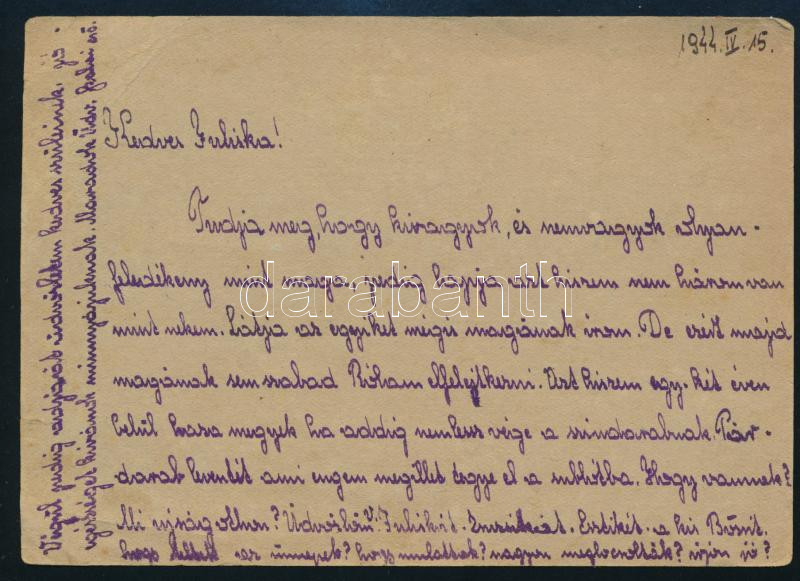 1944. IV. 15.
Kedves Juliska!
Tudja meg, hogy kivagyok, és nemvagyok olyan
feledékeny mint maga, pedig lapja azt hiszem nem három van
mint nekem. Látja az egyiket mégis magának irom. De ezért majd
magának sem szabad Rólam elfelejtkezni. Azt hiszem egy-két éven
belül haza megyek ha addig nemlessz vége a szindarabnak. Pár-
darab leventét ami engem megillet tegye el a sublótba. Hogy vannak?
Mi ujság otthon? Üdvözlöm Juliskát. Zsuzsikát. Erzsikét. a kis Bözsit.
hogy teltek az ünnepek? hogy mulattak? nagyon meglocsolták? irjon jó?
Végül pedig átadását üdvözletem kedves szüleinek, jó
egészséget kívánok mindnyájuknak. Maradok Üdv.
darabanth